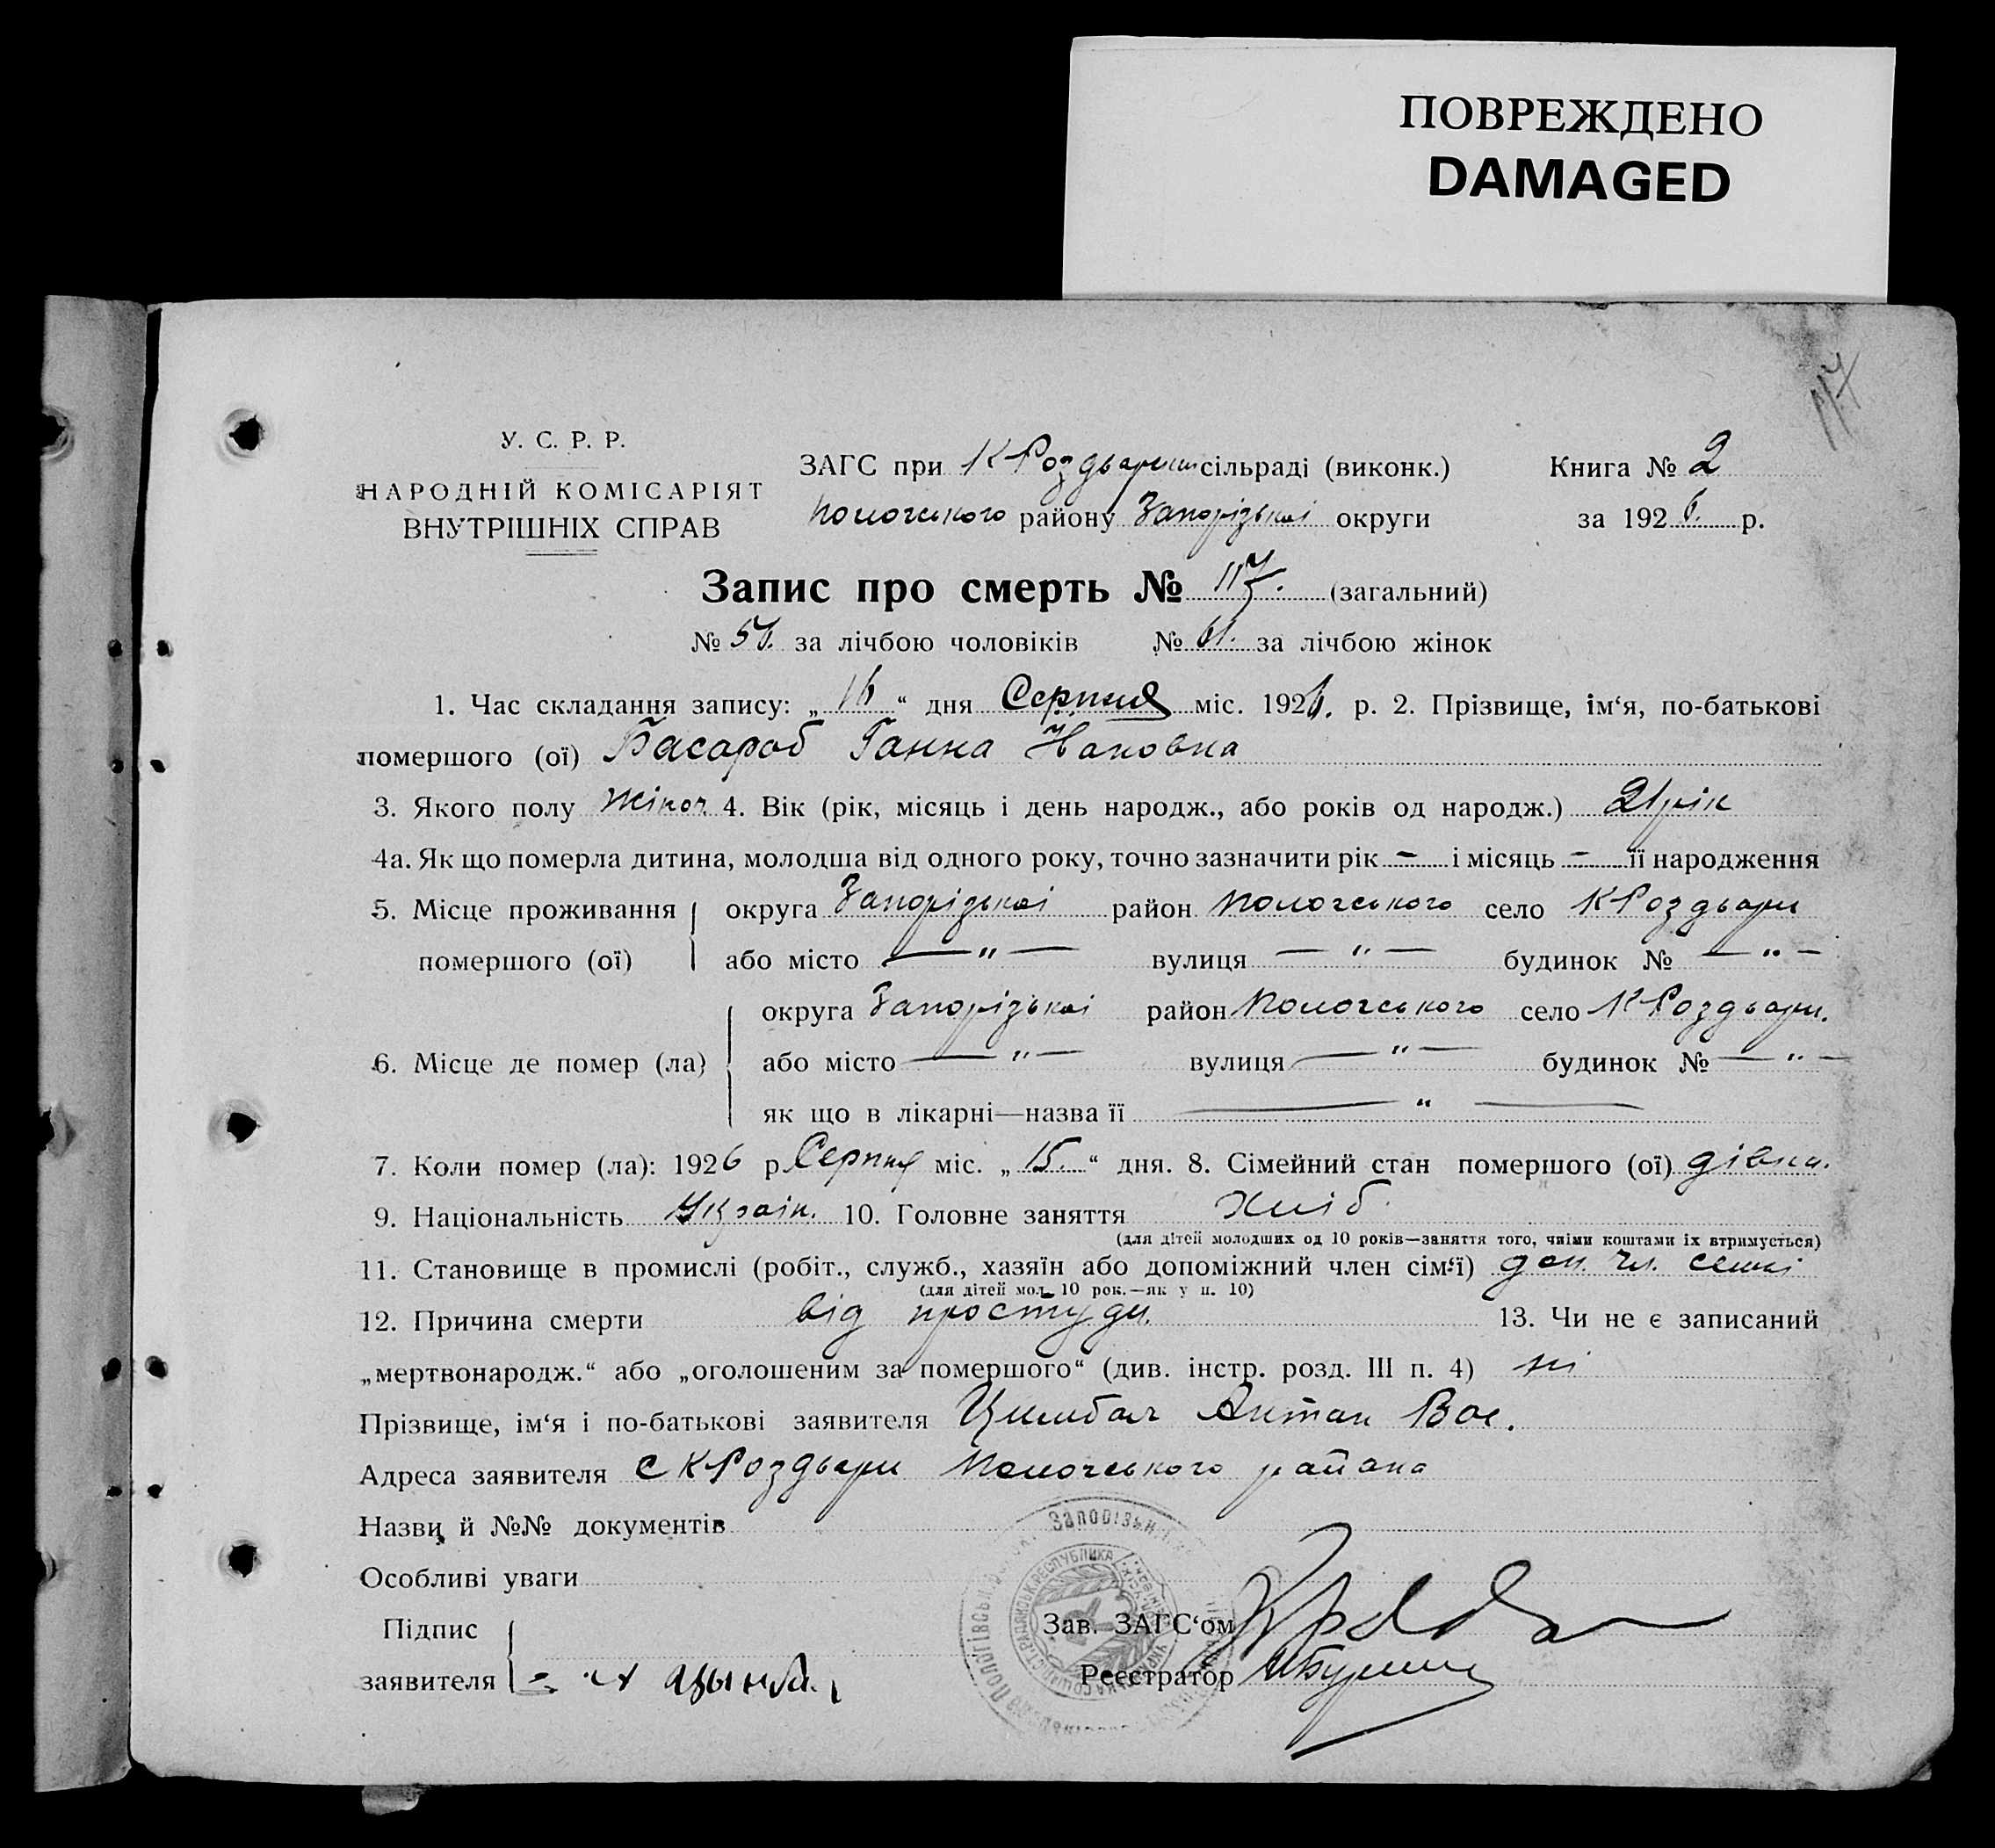 ПОВРЕЖДЕНО
DAMAGED
117
У. С. Р. Р.
НАРОДНІЙ КОМІСАРІЯТ
ВНУТРІШНІХ СПРАВ
ЗАГС при К Роздьарш сільраді (виконк.) Книга № 2
Пологського району Запорізької округи за 1926. р.
Запис про смерть № 117. (загальний)
№ 56. за лічбою чоловіків № 61. за лічбою жінок
1. Час складання запису: „16“ дня Серпня міс. 1926. р. 2. Прізвище, ім‘я, по-батькові
помершого (ої) Басараб Ганна
3. Якого полу жіноч. 4. Вік (рік, місяць і день народж., або років од народж.) 21 рік
4а. Як що померла дитина, молодша від одного року, точно зазначити рік – і місяць – її народження
5. Місце проживання округа Запорізької район Пологського село К Роздьари
помершого (ої) або місто — " — вулиця — " — будинок № — " —
округа Запорізької район Пологського село К Роздьари.
6. Місце де помер (ла) або місто — " — вулиця — " — будинок № — " —
як що в лікарні—назва її — " —
7. Коли помер (ла): 1926 р. Серпня міс. „15.“ дня. 8. Сімейний стан помершого (ої) дівка.
9. Національність Україн. 10. Головне заняття хліб.
(для дітей молодших од 10 років—заняття того, чиїми коштами їх втримується)
11. Становище в промислі (робіт., служб., хазяїн або допоміжний член сім‘ї) доп. чл. семьі
(для дітей мол. 10 рок.—як у п. 10)
12. Причина смерти від простуди. 13. Чи не є записаний
„мертвонародж.“ або „оголошеним за помершого“ (див. інстр. розд. III п. 4) ні
Прізвище, ім‘я і по-батькові заявителя Цимбал Антон Вас.
Адреса заявителя с К Роздьари Пологського района
Назви й №№ документів
Особливі уваги
Підпис
заявителя
Зав. ЗАГС‘ом
Реєстратор